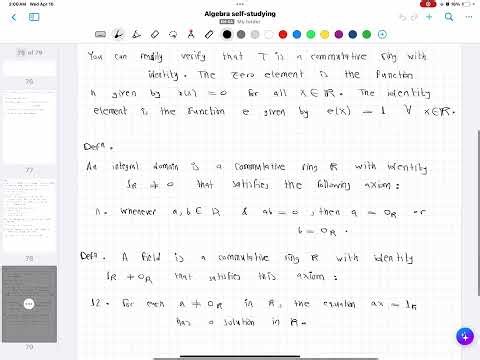 2:08 AM Wed Apr 16
Algebra self-studying
My folder
16%
79 of 79
76
77
78
79
You can readily verify that T is a commutative ring with
identity. The zero element is the function
h given by h(x) = 0 for all x ∈ R. The identity
element is the function e given by e(x) = 1 ∀ x ∈ R.
Defn.
An integral domain is a commutative ring R with identity
1R ≠ 0 that satisfies the following axiom:
11. Whenever a, b ∈ R & ab = 0, then a = 0R or
b = 0R.
Defn. A field is a commutative ring R with identity
1R ≠ 0R that satisfies this axiom:
12. For each a ≠ 0R in R, the equation ax = 1R
has a solution in R.